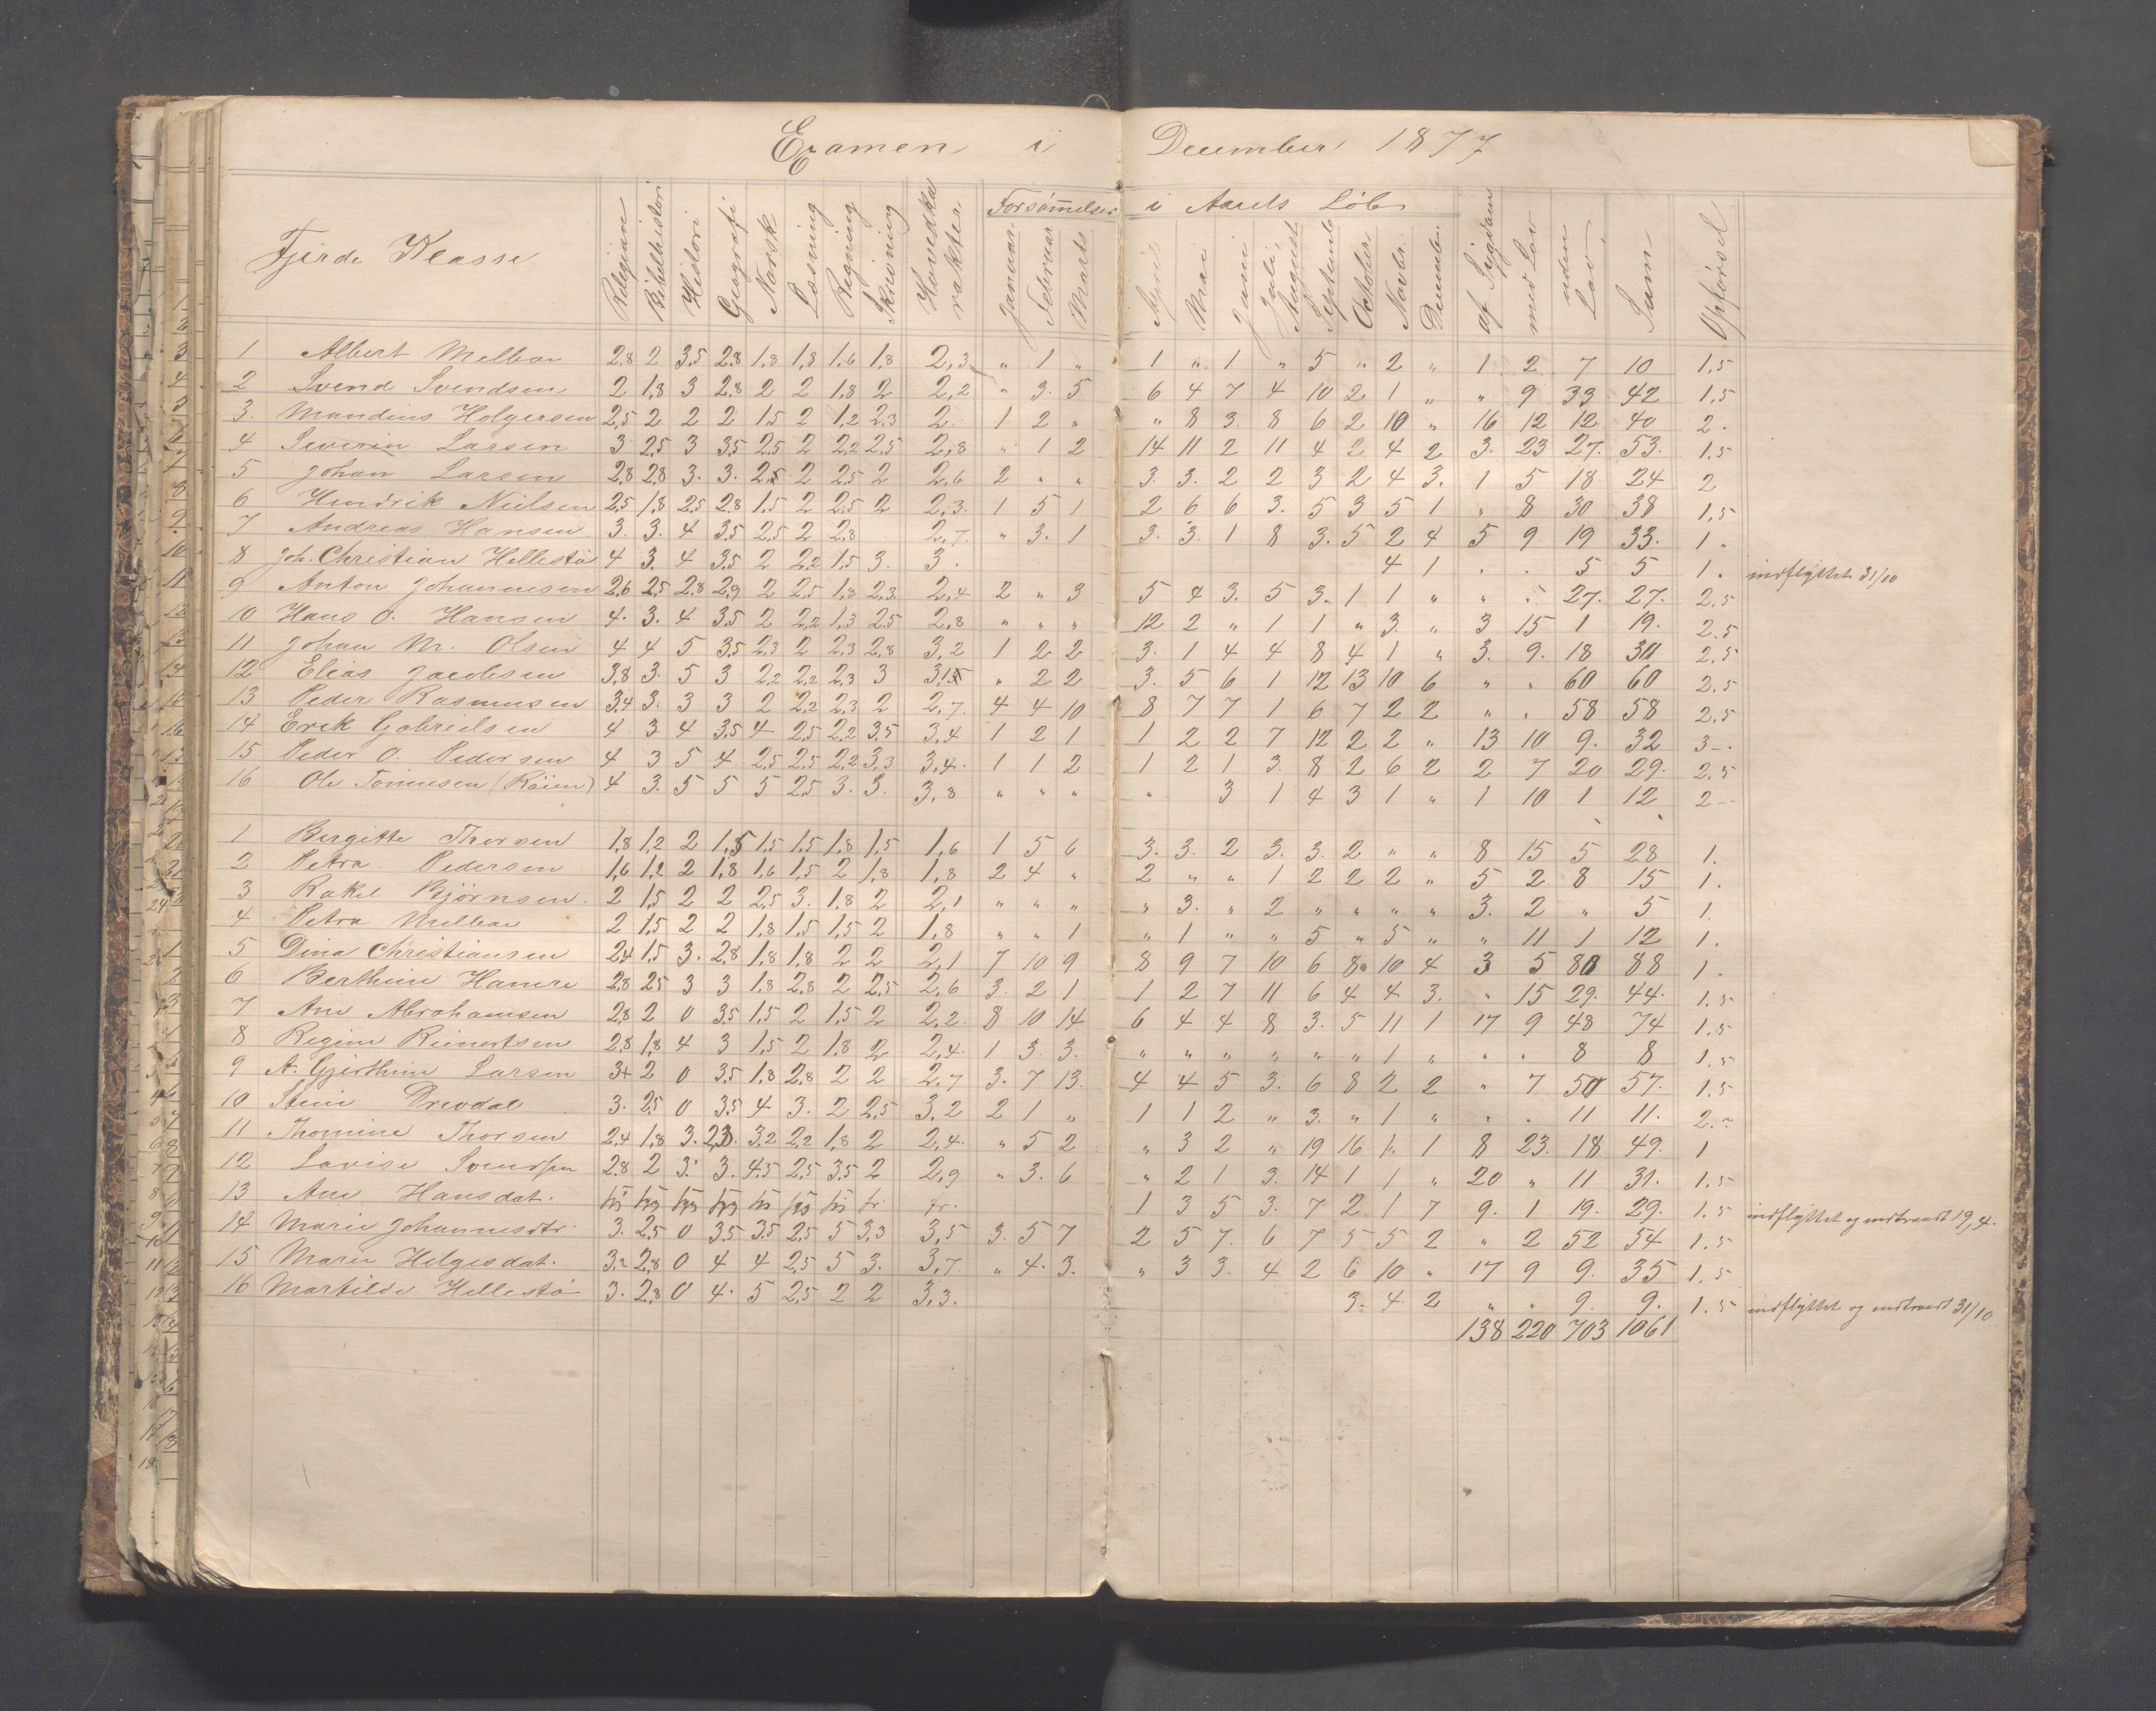 Examen i December 1877
Fjerde Klasse Religion Bibelhistori Histori Geografi Norsk Læsning Regning Skrivning Hovedka rakter Forsømmelser i Aarets Løb Januar Februar Marts April Mai Juni Juli August Septembr October Novbr. Decembr. af Sygdom med Lov uden Lov. Sum Opførsel
1 Albert Melbar 2,8 2 3,5 2,8 1,8 1,8 1,6 1,8 2,3 " 1 " 1 " 1 " 5 " 2 " 1 2 7 10 1,5
2 Svend Svendsen 2 1,8 3 2,8 2 2 1,8 2 2,2 " 3. 5 6 4 7 4 10 2 1 " " 9 33 42 1,5
3. Mandius Holgersen 2,5 2 2 2 1,5 2 1,2 2,3 2 1 2 " " 8 3. 8 6 2 10 " 16 12 12 40 2.
4 Severin Larsen 3 2,5 3 3,5 2,5 2 2,2 2,5 2,8 " 1 2 14 11 2 11 4 2 4 2 3. 23 27. 53. 1,5
5 Johan Larsen 2,8 2,8 3. 3. 2,5 2 2,5 2 2,6 2 " " 3. 3. 2 2 3 2 4 3. 1 5 18 24 2
6 Hendrik Nielsen 2,5 1,8 2,5 2,8 1,5 2 2,5 2 2,3. 1 5 1 2 6 6 3. 5 3 5 1 " 8 30 38 1,5
7 Andreas Hansen 3. 3. 4 3,5 2,5 2 2,8 2,7. " 3. 1 3. 3. 1 8 3. 5 2 4 5 9 19 33. 1 "
8 Joh. Christian Hellestø 4 3. 4 3,5 2 2,2 1,5 3. 3. 4 1 . . 5 5 1. indflyttet 31/10
9 Anton Johannesen 2,6 2,5 2,8 2,9 2 2,5 1,8 2,3 2,4 2 " 3 5 4 3. 5 3. 1 1 " " " 27. 27. 2,5
10 Hans O. Hansen 4. 3. 4 3,5 2 2,2 1,3 2,5 2,8 " " " 12 2 " 1 1 " 3. " 3 15 1 19. 2.5
11 Johan M. Olsen 4 4 5 3,5 2,3 2 2,3 2,8 3,2 1 2 2 3. 1 4 4 8 4 1 " 3. 9. 18 30 2,5
12 Elias Jacobsen 3,8 3. 5 3 2,2 2,2 2,3 3 " 2 2 3. 5 6 1 12 13 10 6 " " 60 60 2.5
13 Peder Rasmusen 3,4 3. 3 3 2 2,2 2,3 2 2,7. 4 4 10 8 7 7 1 6 7 2 2 " . 58 58 2,5
14 Erik Gabrielsen 4 3 4 3,5 4 2,5 2,2 3,5 3,4 1 2 1 1 2 2 7 12 2 2 " 13 10 9. 32 3-.
15 Peder O. Pedersen 4 3 5 4 2,5 2,5 2,2 3,3 3,4. 1 1 2 1 2 1 3. 8 2 6 2 2 7 20 29. 2,5
16 Ole Tønnesen (Röien) 4 3. 5 5 5 2,5 3. 3. 3,8 " " " " 3 1 4 3 1 " 1 10 1 12 2-
1 Bergitte Thorsen 1,8 1,2 2 1,5 1,5 1,5 1,8 1,5 1,6 1 5 6 3. 3. 2 3. 3. 2 " " 8 15 5 28 1.
2 Petra Pedersen 1,6 1,2 2 1,8 1,6 1,5 2 1,8 1,8 2 4 " 2 " " 1 2 2 2 " 5 2 8 15 1.
3 Rakel Bjørnsen. 2 1,5 2 2 2,5 3. 1,8 2 2,1 " " " " 3. " 2 " " " " 3. 2 " 5 1.
4 Petra Melbar 2 1,5 2 2 1,8 1,5 1,5 2 1,8 " " 1 " 1 " " 5 " 5 " " 11 1 12 1.
5 Dina Christiansen 2,4 1,5 3. 2,8 1,8 1,8 2 2 2,1 7 10 9 8 9 7 10 6 8 10 4 3 5 80 88 1.
6 Berthine Hamre 2,8 2,5 3 3 1,8 2,8 2 2,5 2,6 3. 2 1 1 2 7 11 6 4 4 3. " 15 29. 44. 1.5
7 Ane Abrahamsen 2,8 2 0 3,5 1,5 2 1,5 2 2,2. 8 10 14 6 4 4 8 3. 5 11 1 17 9 48 74 1,5
8 Regine Reinertsen 2,8 1,8 4 3 1,5 2 1,8 2 2,4. 1 3. 3. " " " " " " 1 " " " 8 8 1.5
9 A. Gjerthine Larsen 3,4 2 0 3,5 1,8 2,8 2 2 2,7 3. 7 13. 4 4 5 3. 6 8 2 2 " 7 50 57. 1,5
10 Stine Drevdal 3. 2,5 0 3,5 4 3. 2 2,5 3,2 2 1 " 1 1 2 " 3. " 1 " " . 11 11. 2.
11 Thomine Thorsen 2,4 1,8 3. 3,2 2,2 1,8 2 2,4. " 5 2 " 3 2 " 19 16 1. 1 8 23. 18 49. 1
12 Lovise Svendsen 2.8 2 3. 3. 4.5 2,5 3,5 2 2,9 " 3. 6 " 2 1 3. 14 1 1 " 20 " 11 31. 1.5
13 Ane Hansdat. fr. fr. 1 3 5 3. 7 2 1 7 9. 1 19. 29. 1.5 indflyttet og indtraadt 19/4.
14 Marie Johannesdtr. 3. 2,5 0 3,5 3,5 2,5 5 3,3 3,5 3. 5 7 2 5 7. 6 7 5 5 2 " 2 52 54 1,5
15 Marie Helgesdat. 3,2 2,8 0 4 4 2,5 5 3. 3,7 " 4. 3. " 3 3. 4 2 6 10 " 17 9 9. 35 1,5
16 Martilde Hellestø 3. 2,8 0 4. 5 2,5 2 2 3,3. 3. 4 2 " " 9. 9. 1.5 indflyttet og indtraadt 31/10
138 220 703 1061